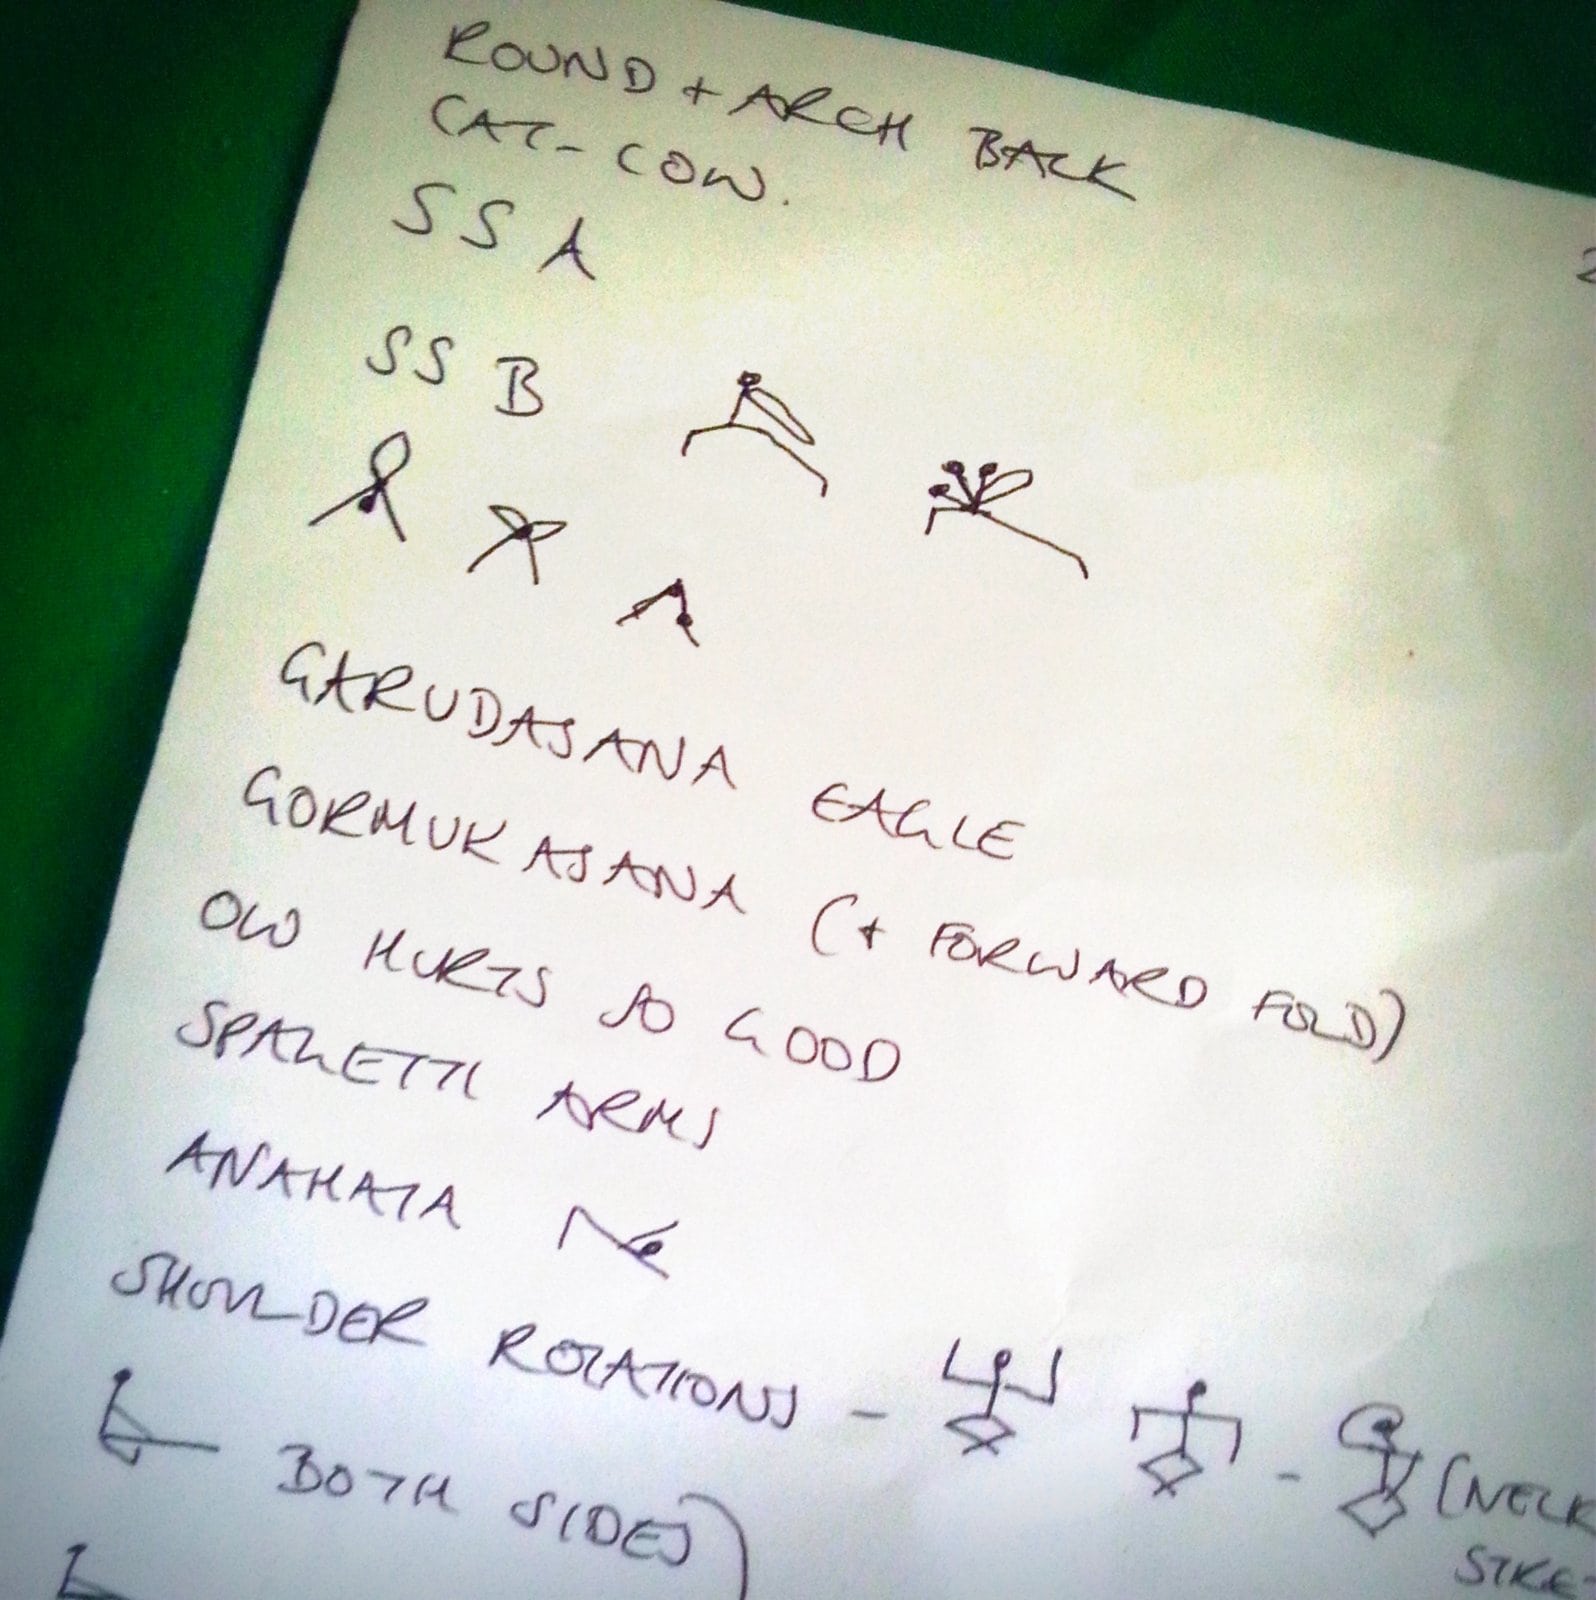 ROUND + ARCH BACK
CAT-COW.
SSA
2
SSB
GARUDASANA EAGLE
GORMUKASANA (+ FORWARD FOLD)
OW HURTS SO GOOD
SPAGETTI ARMS
ANAHATA
SHOULDER ROTATIONS - - (NECK
STRE-
BOTH SIDES)